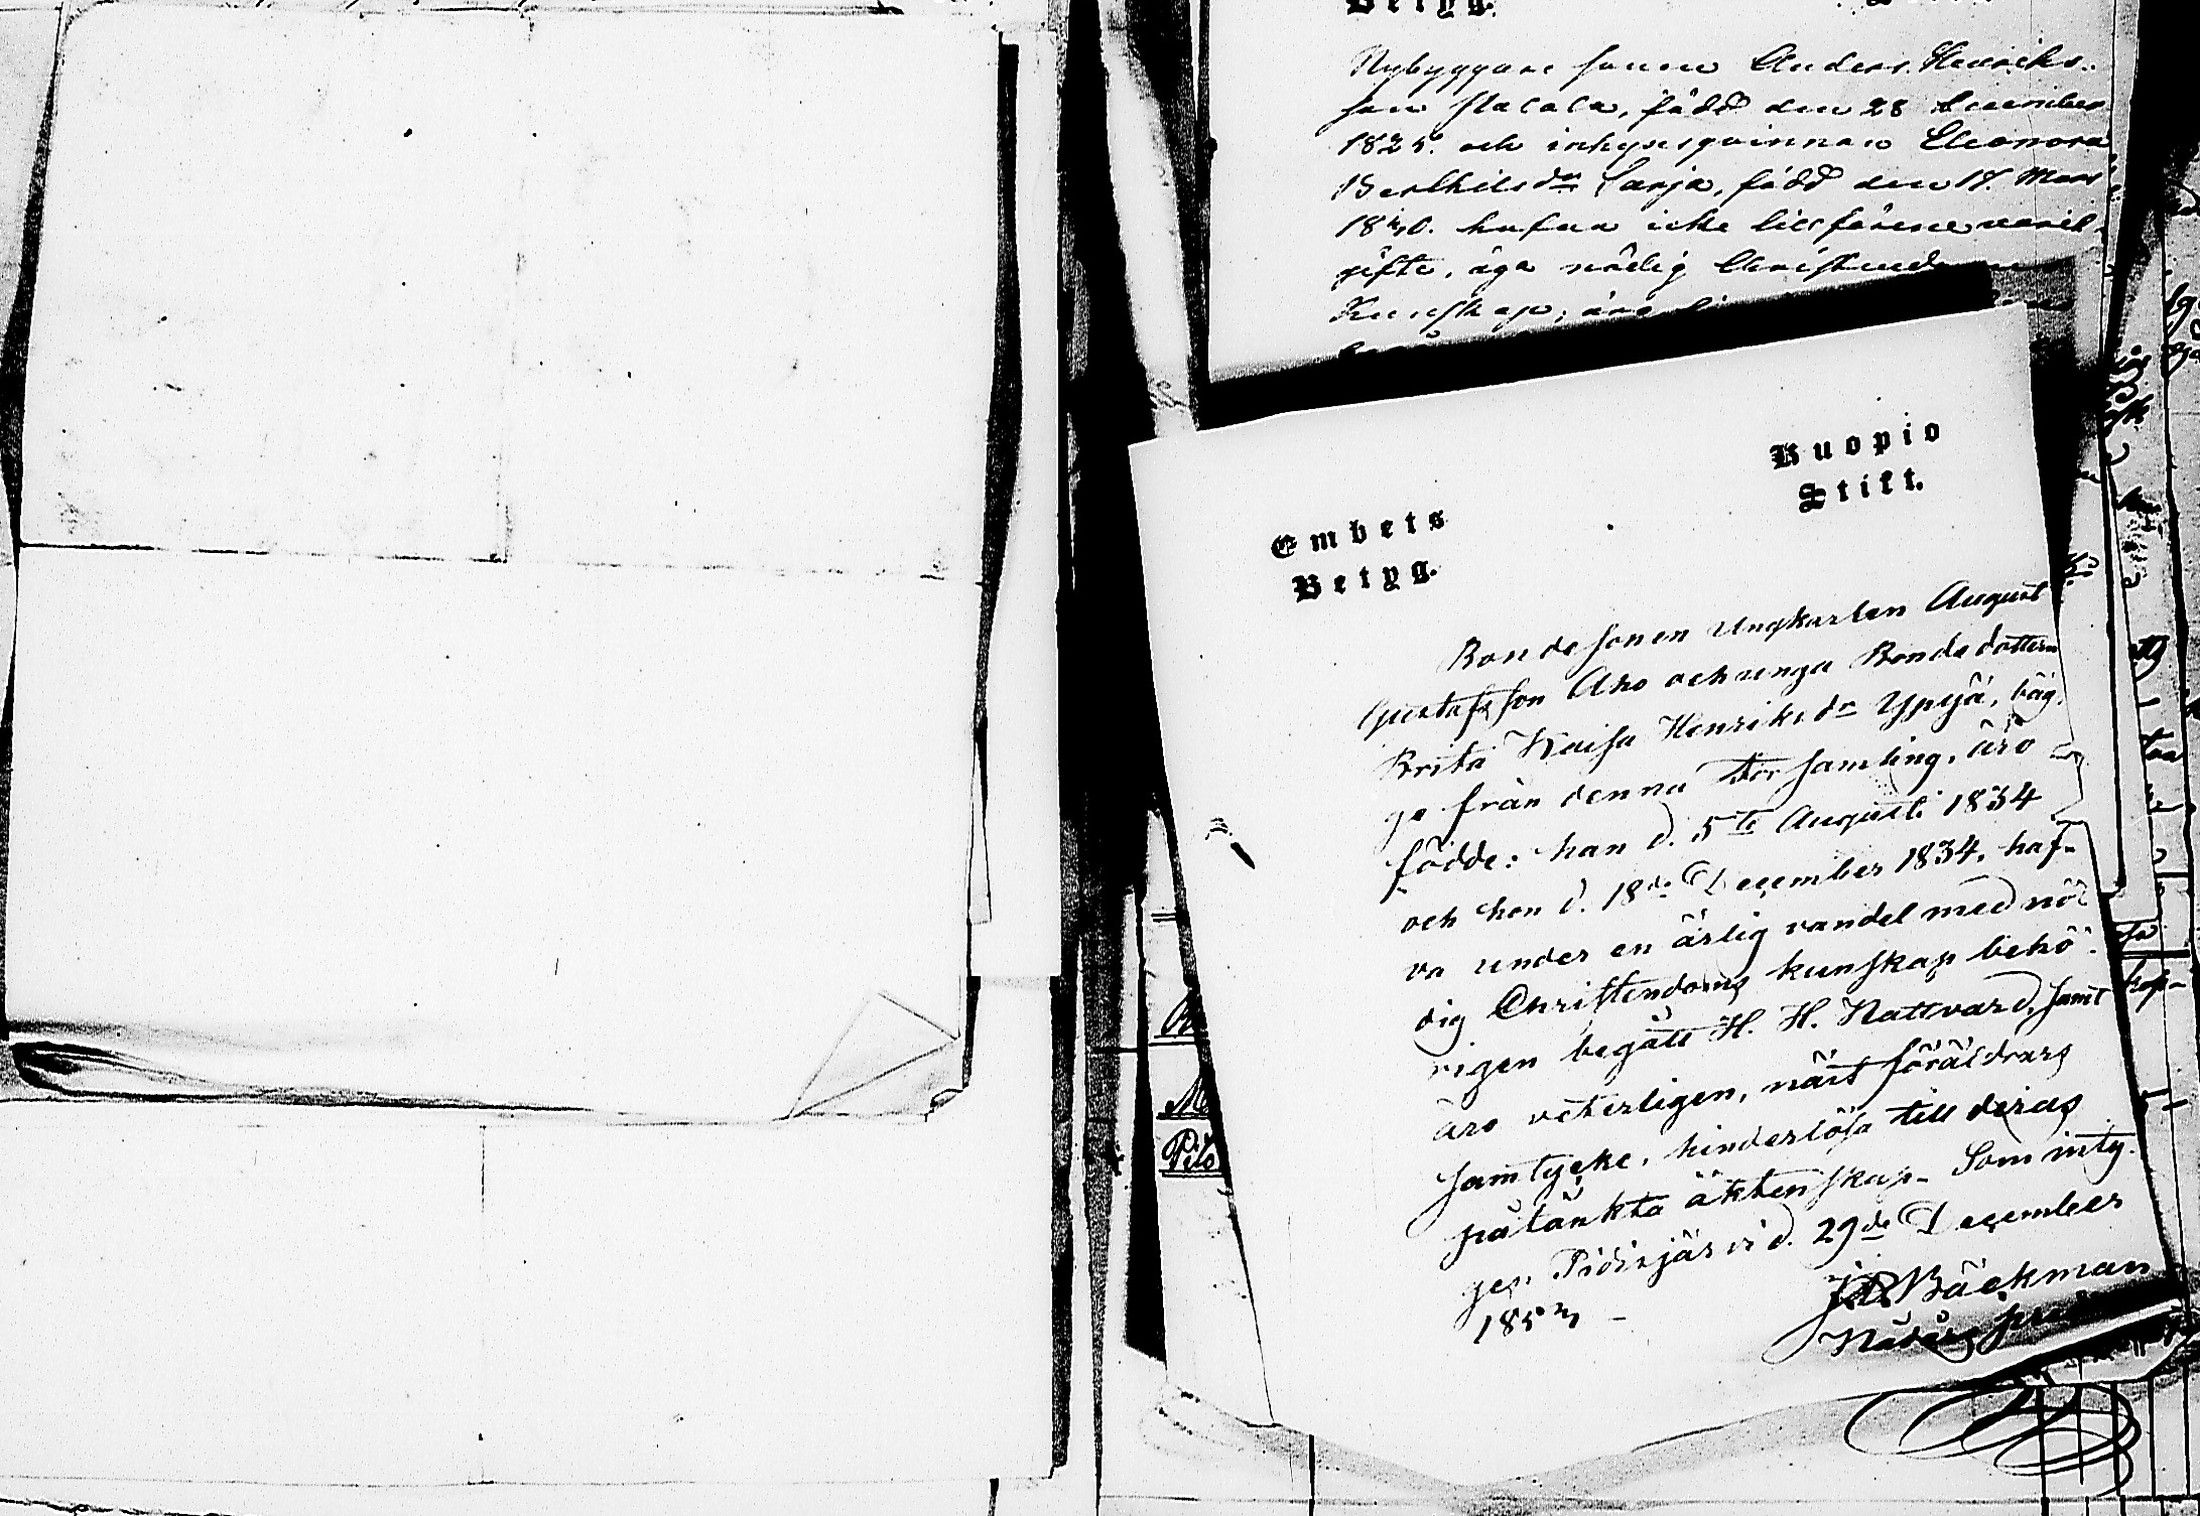 Betyg.
Nybyggare sonen Anders Henriks-
son Halala, född den 28 December
1825. och inhysesqvinnan Eleonora
Berthilsdr Sarja, född den 18. Mars
1830. hafva icke tillförene varit
gifte, äga nödig Christendoms
Kunskap; äro
Kuopio
Stift.
Embets
Betyg.
Bondesonen Ungkarlen August
Gustafsson Aho och unga Bondedottern
Brita Kaisa Henriksdr Ypyä, bäg-
ge från denna Församling, äro
födde: han d. 5te Augusti 1834
och hon d. 18de December 1834, haf-
va under en ärlig vandel med nö-
dig Christendoms kunskap behö-
rigen begått H. H. Nattvard, samt
äro veterligen, näst föräldrars
samtycke, hinderlösa till deras
påtänkta äktenskap. Som inty-
gar. Pidisjärvi d. 29de December
185
Bäckman